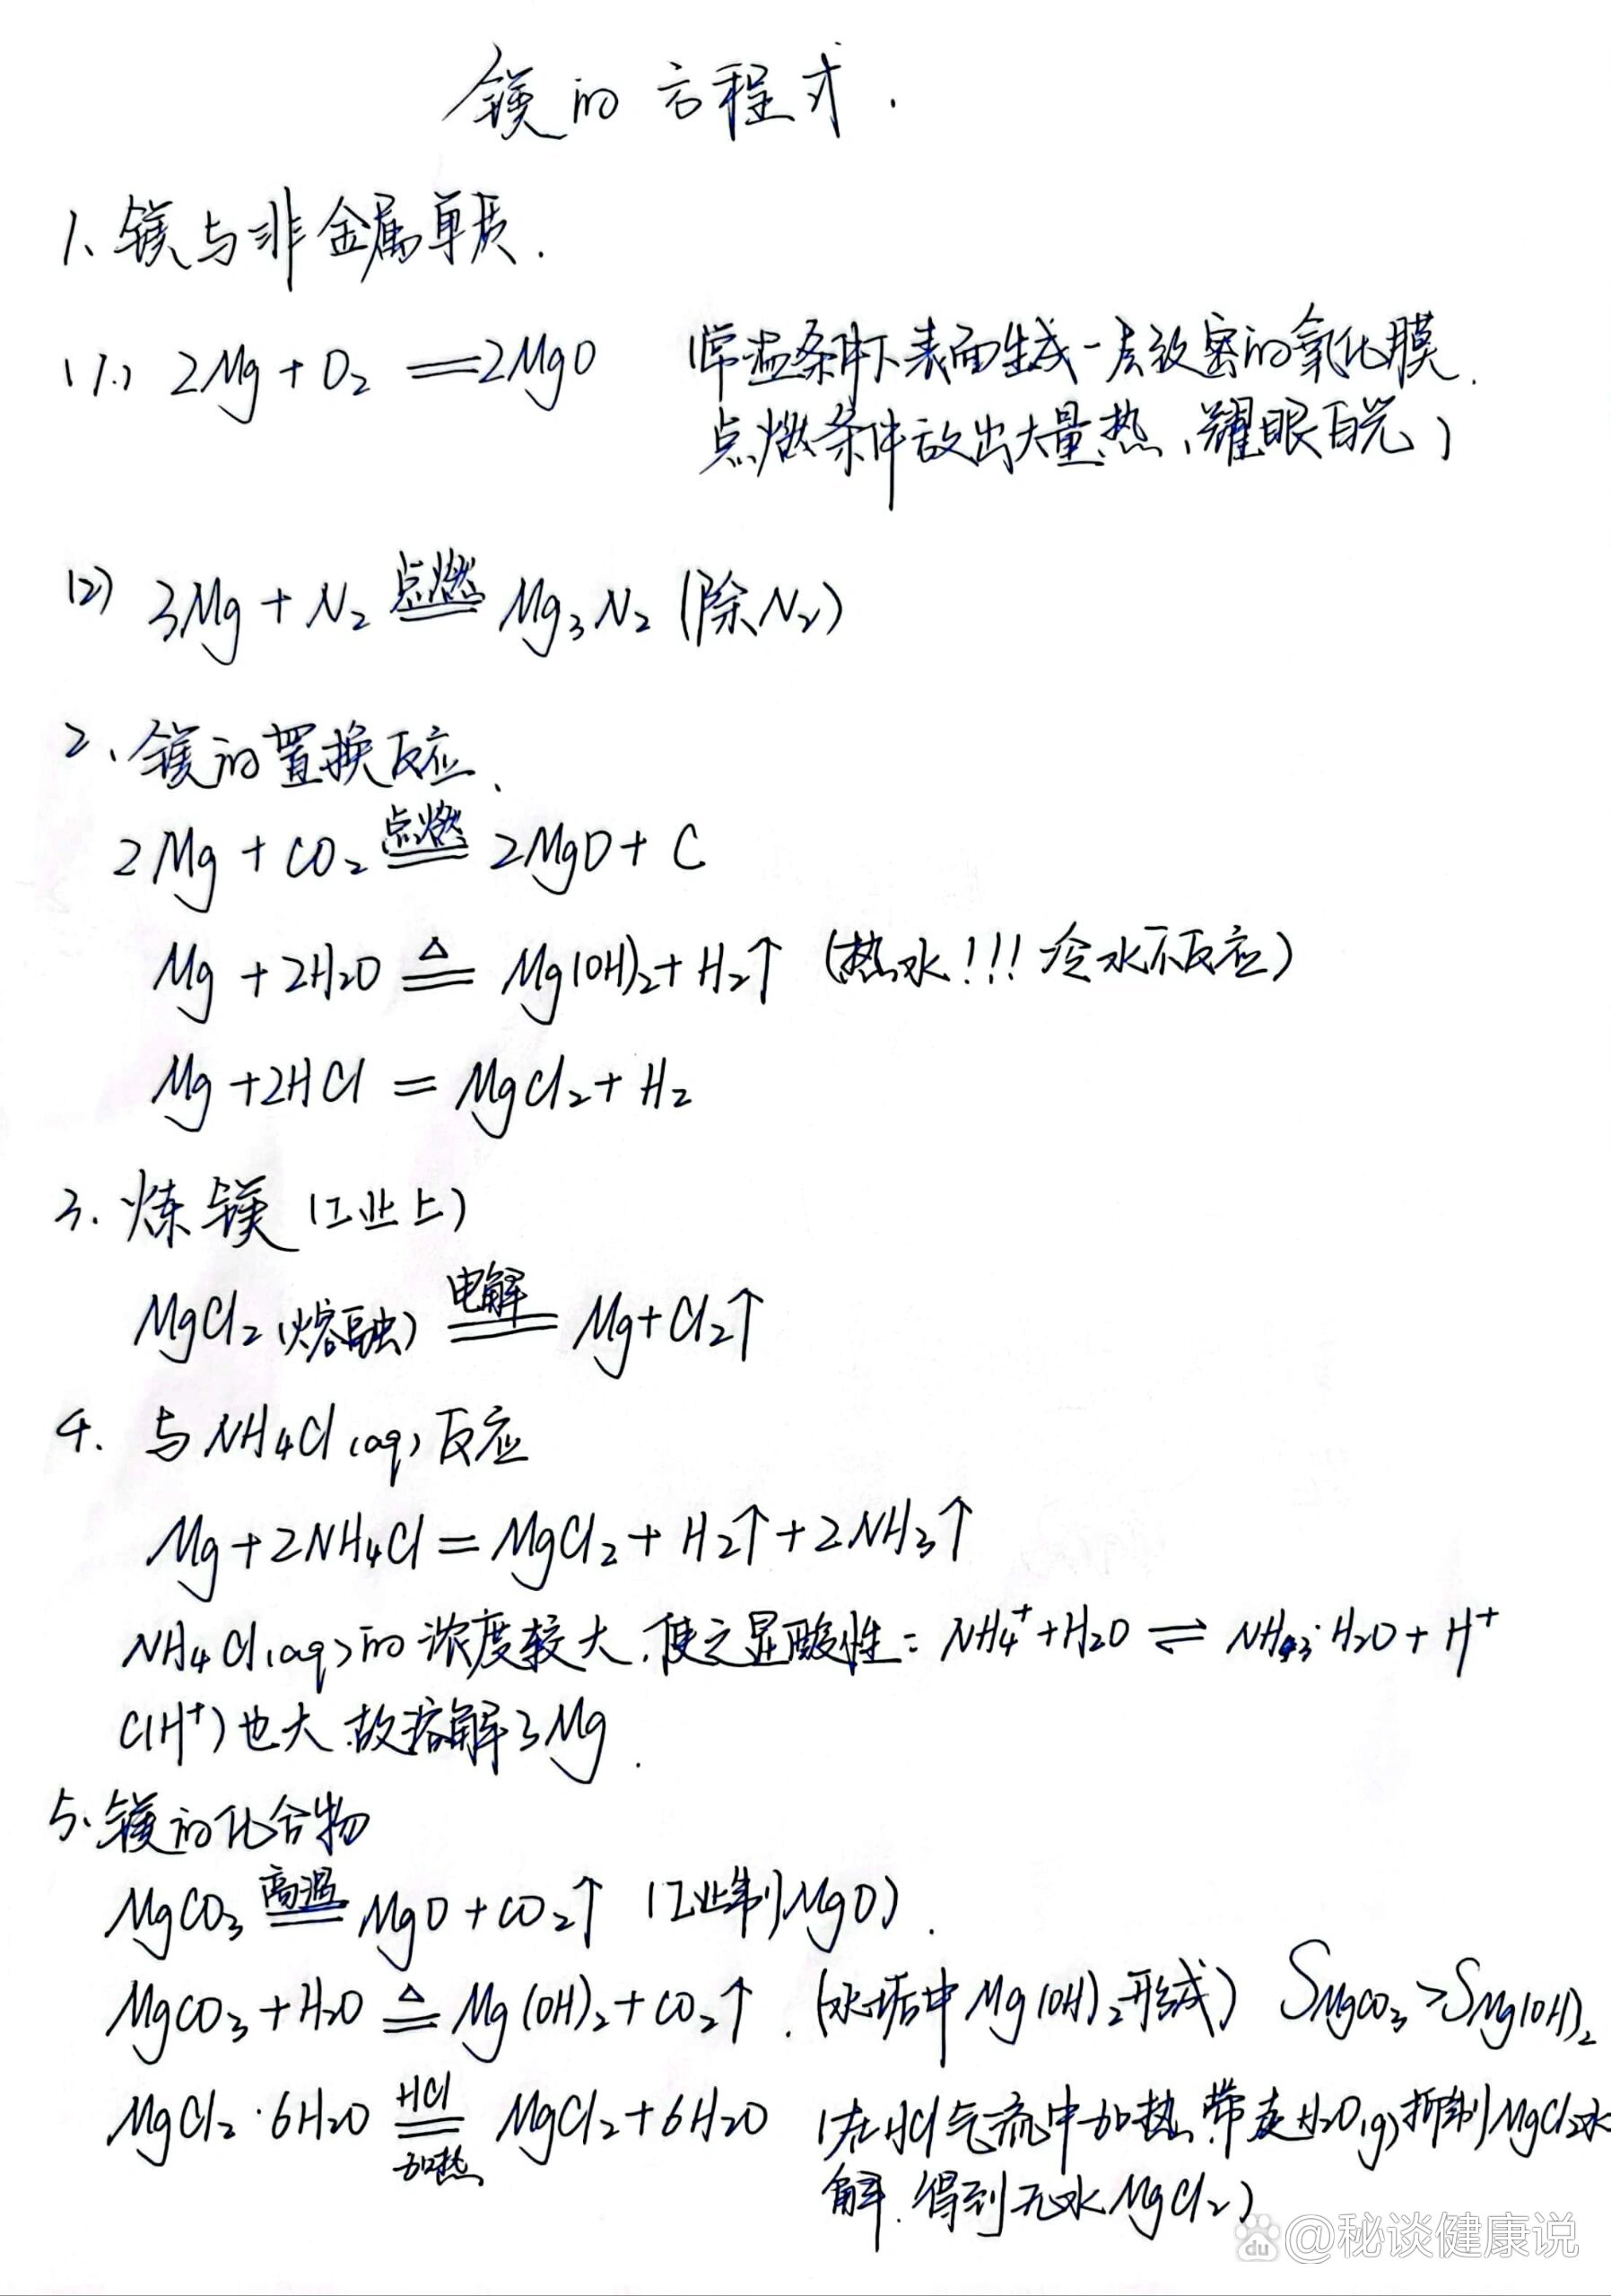 镁的方程式.
1、镁与非金属单质.
(1.) 2Mg + O₂ == 2MgO (常温条件下表面生成一层致密的氧化膜.
点燃条件放出大量热、耀眼白光)
(2) 3Mg + N₂ 点燃== Mg₃N₂ (除N₂)
2、镁的置换反应、
2Mg + CO₂ 点燃== 2MgO + C
Mg + 2H₂O △== Mg(OH)₂ + H₂↑ (热水!!! 冷水不反应)
Mg + 2HCl = MgCl₂ + H₂
3. 炼镁 (工业上)
MgCl₂(熔融) 电解== Mg + Cl₂↑
4. 与NH₄Cl(aq)反应
Mg + 2NH₄Cl = MgCl₂ + H₂↑ + 2NH₃↑
NH₄Cl(aq)的浓度较大.使之显酸性: NH₄⁺ + H₂O ⇌ NH₃·H₂O + H⁺
C(H⁺)也大.故溶解了Mg.
5、镁的化合物
MgCO₃ 高温== MgO + CO₂↑ (工业制MgO).
MgCO₃ + H₂O △== Mg(OH)₂ + CO₂↑. (水垢中Mg(OH)₂形成) S MgCO₃ > S Mg(OH)₂
MgCl₂·6H₂O HCl==加热 MgCl₂ + 6H₂O (在HCl气流中加热.带走H₂O(g)抑制MgCl₂水
解.得到无水MgCl₂)
du @秘谈健康说